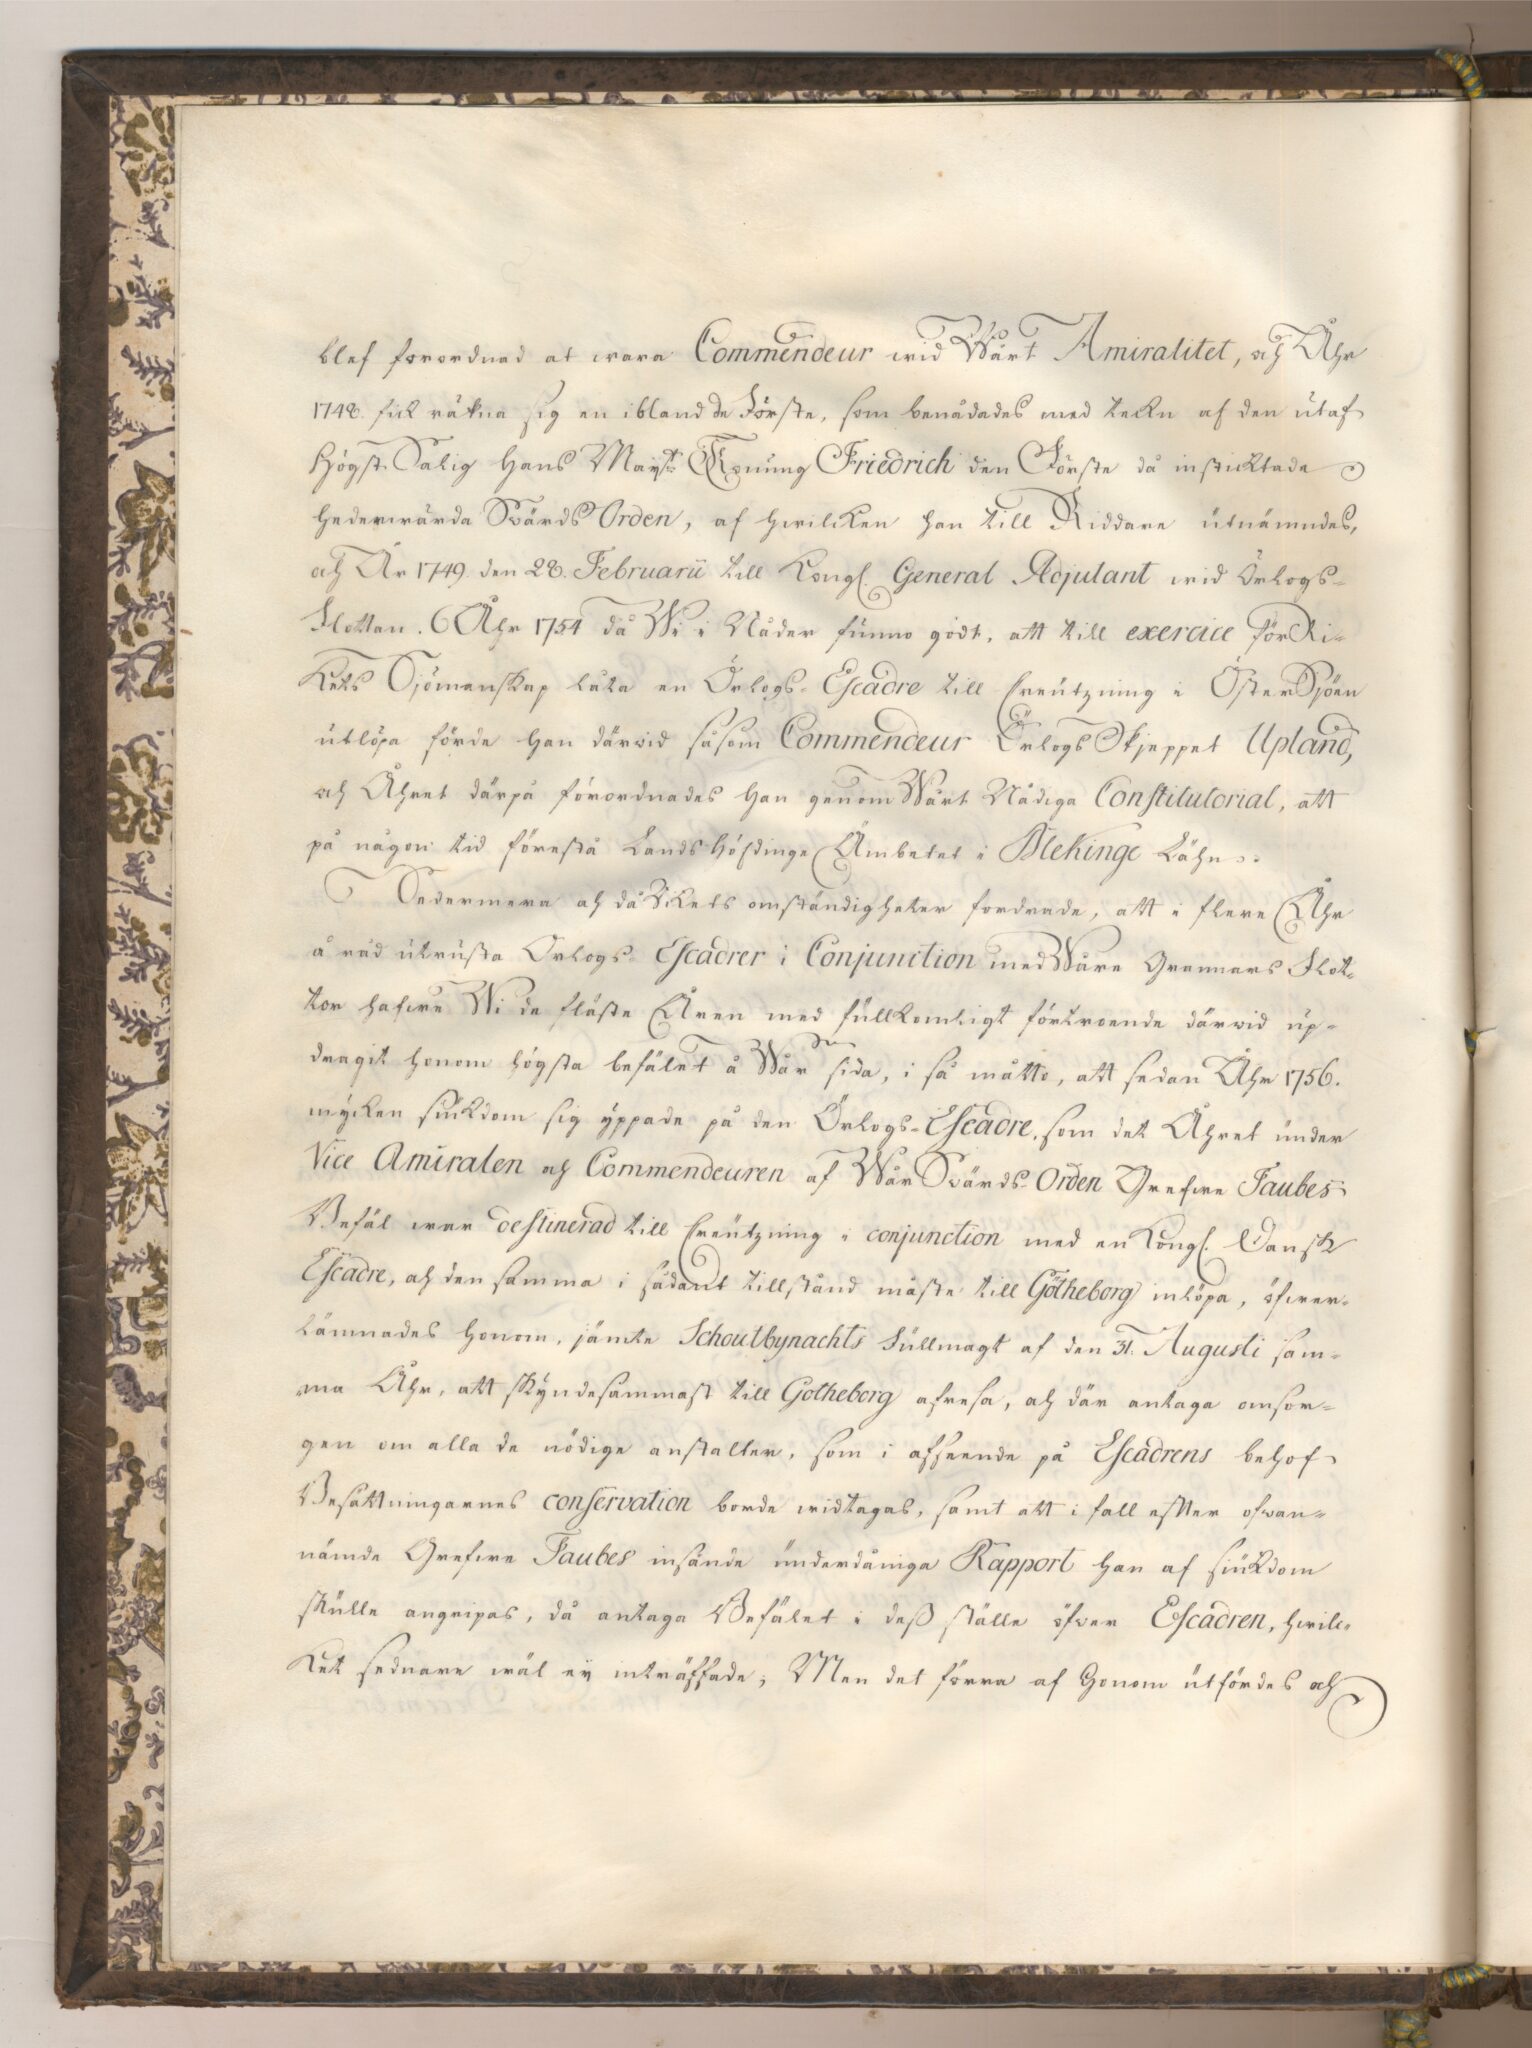 blef förordnad at wara Commendeur wid Wårt Amiralitet, och Åhr
1748. fick räkna sig en ibland de Förste, som benådades med tekn af den utaf
Högst Salig Hans Mayst: Konung Friedrich den Förste då instichtade
hederwärda SwärdsOrden, af hwilcken han till Riddare utnämndes,
och År 1749. den 28. Februarii till Kongl. General Adjutant wid Örlogs-
Flottan. Åhr 1754 då Wi i Nåder funno godt, att till exercice för Ri-
kets Sjömanskap låta en Örlogs-Escadre till Creutzning i ÖsterSjöen
utlöpa förde han därwid såsom Commendeur ÖrlogsSkjeppet Upland,
och Åhret därpå förordnades han genom Wårt Nådiga Constitutorial, att
på någon tid förestå Landshöfdinge Ämbetet i Blekinge Lähn.
Sedermera och då Rikets omständigheter fordrade, att i flere Åhr
å rad utrusta Örlogs-Escadrer i Conjunction med Wåre Grannars Flot-
tor hafwe Wi de fläste Åren med fullkomligt förtroende därwid up-
dragit honom högsta befälet å Wår sida, i så måtto, att sedan Åhr 1756.
mycken siukdom sig yppade på den Örlogs-Escadre, som det Åhret under
Vice Amiralen och Commendeuren af Wår Swärds-Orden Grefwe Taubes
Befäl war destinerad till Creutzning i conjunction med en Kongl. Dansk
Escadre, och den samma i sådant tillstånd måste till Götheborg inlöpa, öfwer-
lämnades honom, jämte Schoutbynachts Fullmagt af den 31. Augusti sam-
ma Åhr, att skyndesammast till Gotheborg afresa, och där antaga omsor-
gen om alla de nödige anstalter, som i afseende på Escadrens behof
Besättningarnes conservation borde widtagas, samt att i fall efter ofwan-
nämde Grefwe Taubes insände underdåniga Rapport han af siukdom
skulle angripas, då antaga Befälet i dess ställe öfwer Escadren, hwil-
ket sednare wäl ey inträffade; Men det förra af Honom utfördes och